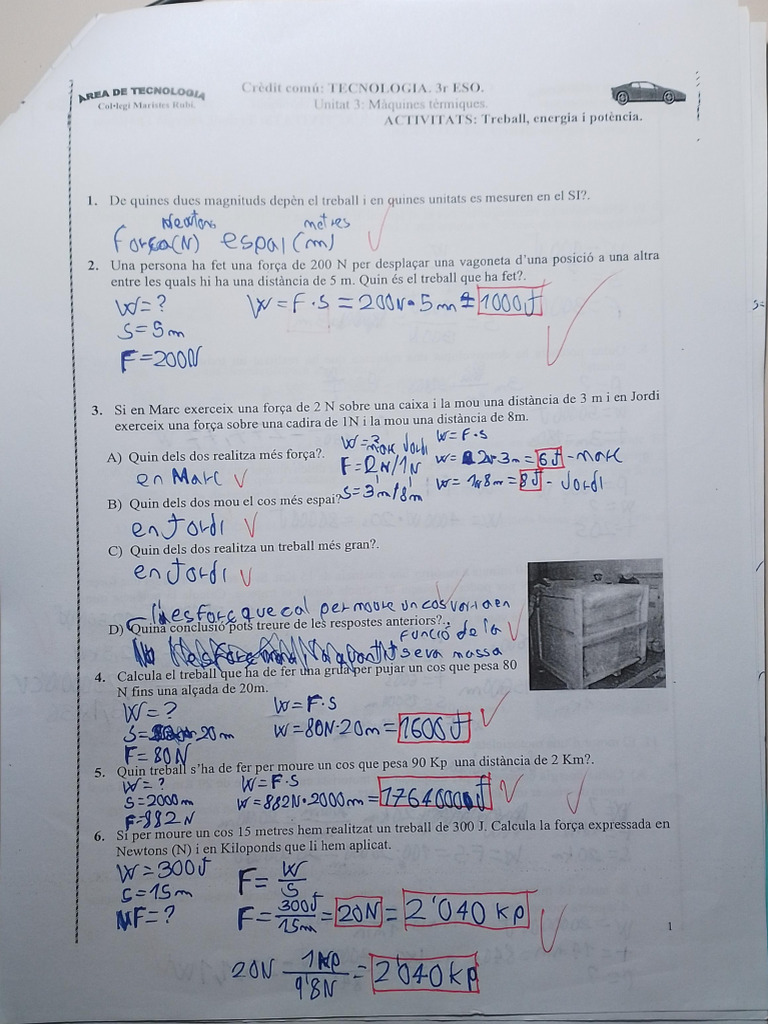 ÀREA DE TECNOLOGIA
Col·legi Maristes Rubí.
Crèdit comú: TECNOLOGIA. 3r ESO.
Unitat 3: Màquines tèrmiques.
ACTIVITATS: Treball, energia i potència.
1. De quines dues magnituds depèn el treball i en quines unitats es mesuren en el SI?.
Newtons metres
força(N) espai (m)
2. Una persona ha fet una força de 200 N per desplaçar una vagoneta d'una posició a una altra
entre les quals hi ha una distància de 5 m. Quin és el treball que ha fet?.
W=? W=F·S=200N·5m=1000J
S=5m
F=200N
3. Si en Marc exerceix una força de 2 N sobre una caixa i la mou una distància de 3 m i en Jordi
exerceix una força sobre una cadira de 1N i la mou una distància de 8m.
W=? W=F·S
marc Jordi
A) Quin dels dos realitza més força?. F=2N/1N W=2·3m=6J-marc
en Marc S=3m/8m W=1·8m=8J-Jordi
B) Quin dels dos mou el cos més espai?
en Jordi
C) Quin dels dos realitza un treball més gran?.
en Jordi
l'esforç que cal per moure un cos varia en
D) Quina conclusió pots treure de les respostes anteriors?.
funció de la
seva massa
4. Calcula el treball que ha de fer una grua per pujar un cos que pesa 80
N fins una alçada de 20m.
W=? W=F·S
S=20m W=80N·20m=1600J
F=80N
5. Quin treball s'ha de fer per moure un cos que pesa 90 Kp una distància de 2 Km?.
W=? W=F·S
S=2000m W=882N·2000m=1764000J
F=882N
6. Si per moure un cos 15 metres hem realitzat un treball de 300 J. Calcula la força expressada en
Newtons (N) i en Kiloponds que li hem aplicat.
W=300J F=W/S
S=15m F=300J/15m=20N=2'040 kp
F=?
1
20N 1kp/9'8N=2'040kp